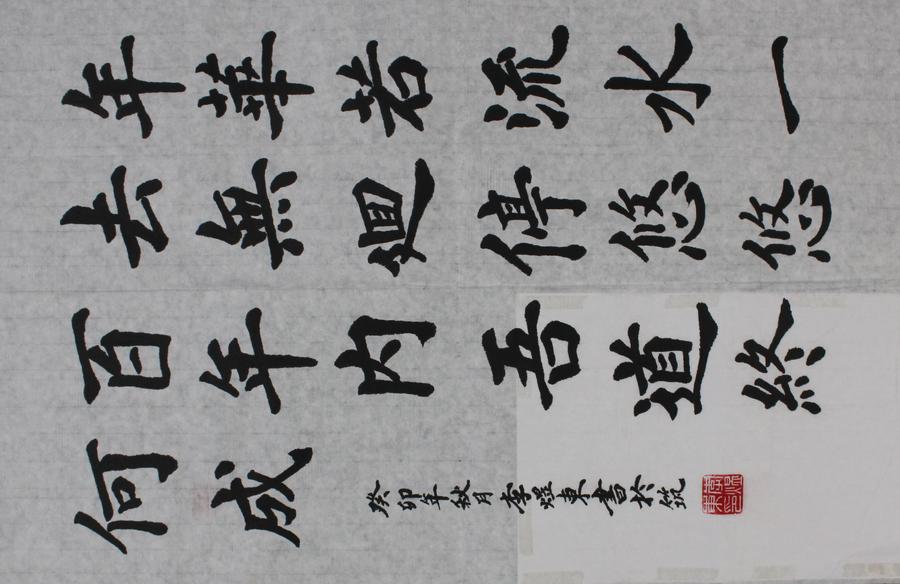 年華若流水一
去無廻停悠悠
百年內吾道終
何成
癸卯年秋月李東書於筑